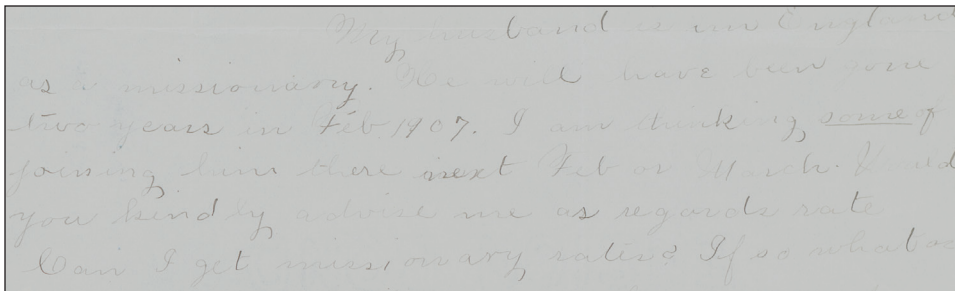 My husband is in England
as a missionary. He will have been gone
two years in Feb 1907. I am thinking some of
joining him there next Feb or March. Would
you kindly advise me as regards rate
Can I get missionary rates? If so what